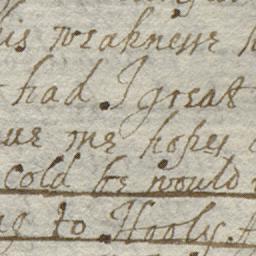 his weaknesse
had I great
me hopes
cold be would
to Hooly.